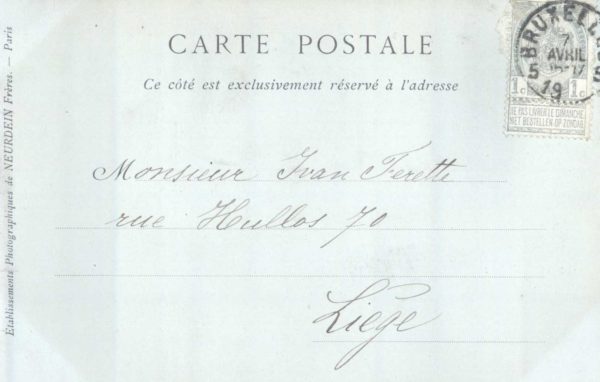 CARTE POSTALE
Ce côté est exclusivement réservé à l'adresse
BRUXELLES
7
AVRIL
5
19
1c 1c
NE PAS LIVRER LE DIMANCHE
NIET BESTELLEN OP ZONDAG
Monsieur Ivan Ferette
rue Hullos 70
Liège
Établissements Photographiques de NEURDEIN Frères. — Paris